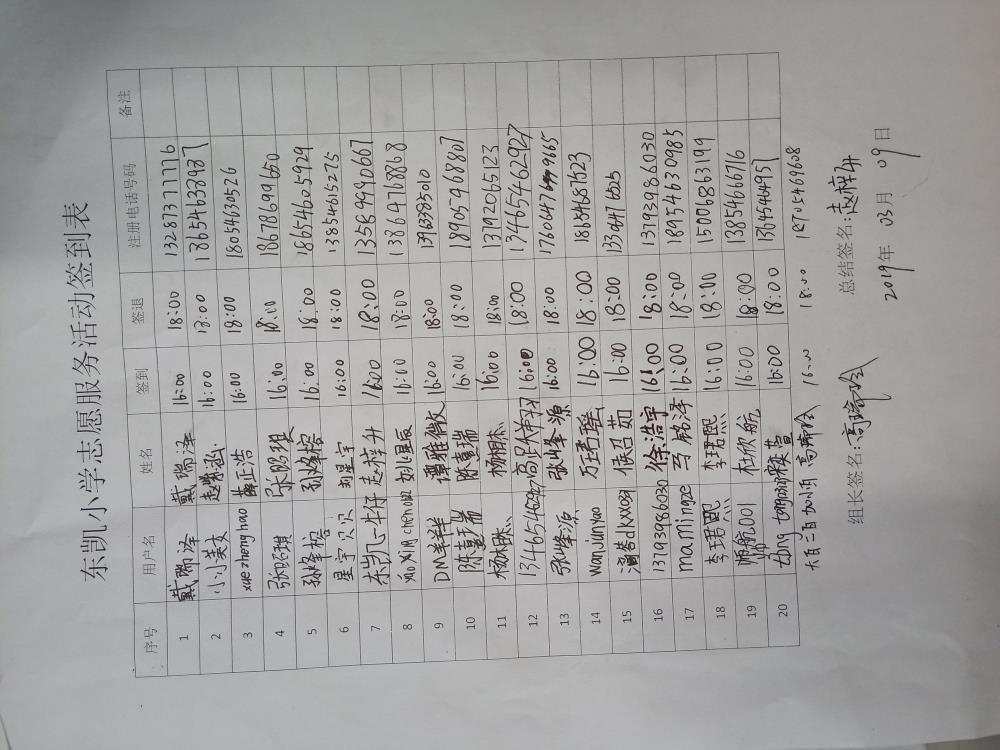 东凯小学志愿服务活动签到表
序号 用户名 姓名 签到 签退 注册电话号码 备注
1 戴瑞泽 戴瑞泽 16:00 18:00 13287377776
2 16:00 18:00 13654638987
3 xuezhenghao 薛正浩 16:00 18:00 18054630526
4 张昭琪 张昭琪 16:00 18:00 18678699650
5 孙烽榕 孙烽榕 16:00 18:00 18654605929
6 星宇贝贝 刘星宇 16:00 18:00 13854665275
7 东凯一牛仔 赵梓升 16:00 18:00 13589990667
8 刘心辰 16:00 18:00 13864768868
9 DM羊羊 谭雅微 16:00 18:00 13963395010
10 陈嘉瑞 陈嘉瑞 16:00 18:00 18905468807
11 杨栩杰 杨栩杰 16:00 18:00 13792065123
12 13465462927 16:00 18:00 13465462927
13 张峰源 张峰源 16:00 18:00
14 wanjunyao 万珺瑶 16:00 18:00 18654687523
15 侯召茹 16:00 18:00
16 13793986030 徐浩宇 16:00 18:00 13793986030
17 mamingze 马铭泽 16:00 18:00 18954630985
18 李珺熙 李珺熙 16:00 18:00 15006863199
19 杜欣航 16:00 18:00 13854666716
20 16:00 18:00
16:00 18:00 18705469608
组长签名:高瑞玲 总结签名:赵梓升
2019年 03月 09日